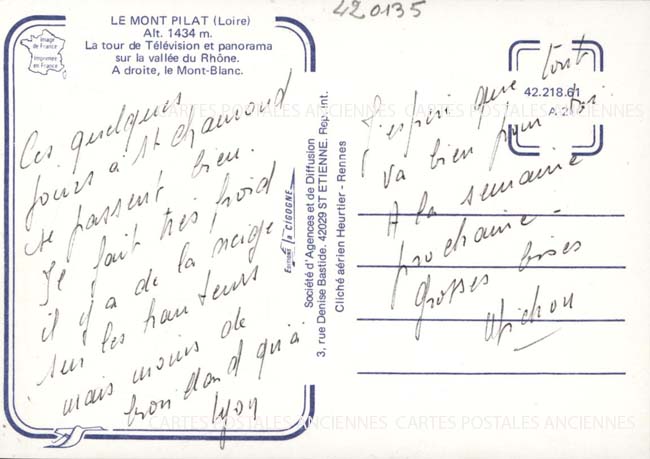 420135
LE MONT PILAT (Loire)
Alt. 1434 m.
La tour de Télévision et panorama
sur la vallée du Rhône.
A droite, le Mont-Blanc.
Image
de France
Imprimée
en France
Ces quelques
jours à St Chamond
se passent bien.
Il fait très froid
il y a de la neige
sur les hauteurs
mais moins de
brouillard qu'à
Lyon
EDITIONS la CIGOGNE
Société d'Agences et de Diffusion
3, rue Denise Bastide. 42029 ST ETIENNE. Rep. int.
Cliché aérien Heurtier - Rennes
42.218.61
J'espère que tout
va bien pour toi
A la semaine
prochaine -
Grosses bises
CARTES POSTALES ANCIENNES CARTES POSTALES ANCIENNES
CARTES POSTALES ANCIENNES CARTES POSTALES ANCIENNES